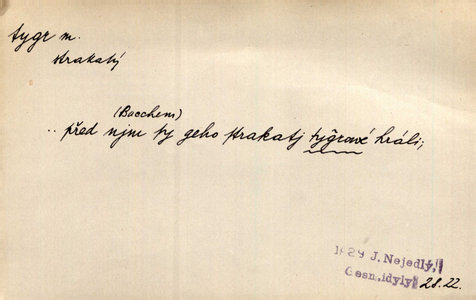 tygr m.
strakatý
(Bacchem)
.. před njm ty geho strakatj tygrové hráli;
1829 J. Nejedlý,
Gesn. idyly
28.22.